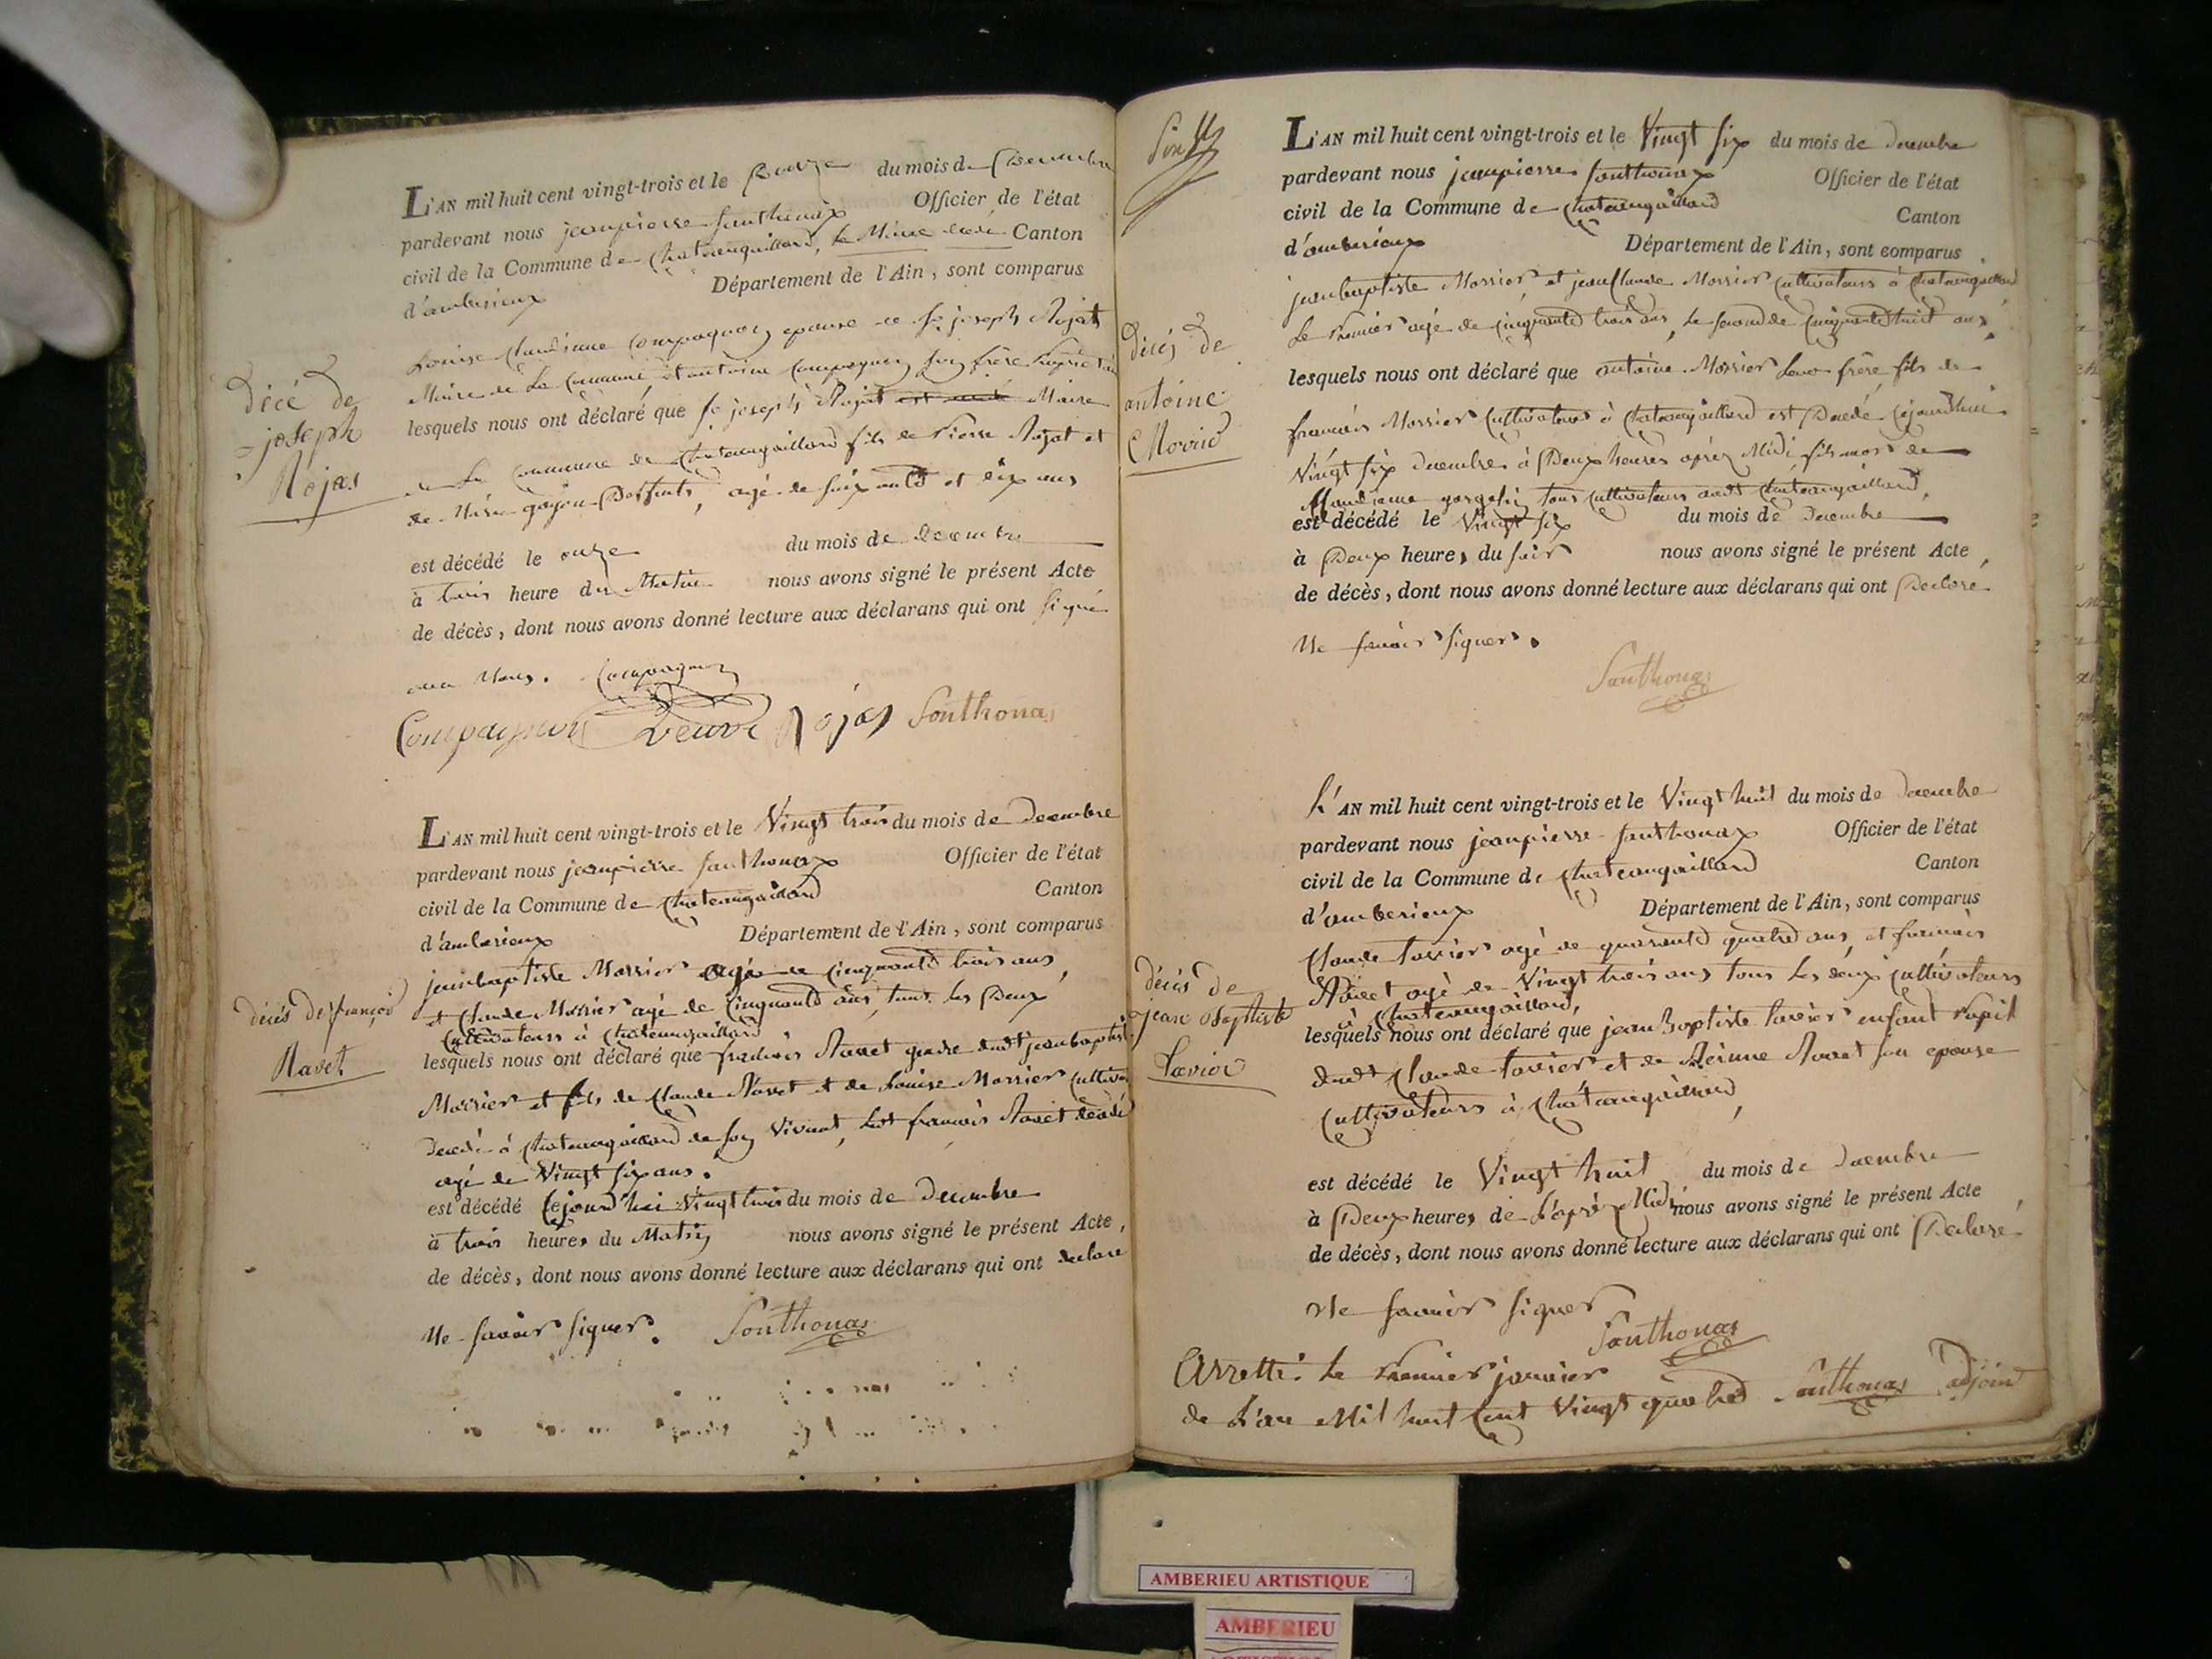 décé de
joseph
Rojas
L'AN mil huit cent vingt-trois et le Douze du mois de Decembre
pardevant nous jeanpierre Santhonax Officier de l'état
civil de la Commune de Chateaugaillard, le Maire décédé Canton
d'amberieux Département de l'Ain, sont comparus
Louise Claudinne Compagnon epouse de joseph Rojat
Maire de la Commune et antoine Compagnon son frère
lesquels nous ont déclaré que joseph Rojat Maire
de la Commune de Chateaugaillard fils de Pierre Rojat et
de Marie Deffunts, agé de soixante et dix ans
est décédé le onze du mois de Decembre
à trois heure du Matin nous avons signé le présent Acte
de décès, dont nous avons donné lecture aux déclarans qui ont signé
avec Nous. Compagnon
Compagnon Veuve Rojas Sonthonas
décés de françois
Ravet
L'AN mil huit cent vingt-trois et le Vingt trois du mois de Decembre
pardevant nous jeanpierre Santhonax Officier de l'état
civil de la Commune de Chateaugaillard Canton
d'amberieux Département de l'Ain, sont comparus
jeanbaptiste Morrier agé de cinquante trois ans,
et Claude Morrier agé de Cinquante ans, tous les Deux
Cultivateurs à Chateaugaillard
lesquels nous ont déclaré que francois Ravet gendre dudt jeanbaptiste
Morrier et fils de Claude Ravet et de Louise Morrier
Decédé à Chateaugaillard de son Vivant, ledt francois Ravet décédé
agé de Vingt six ans.
est décédé Cejourd'hui Vingt trois du mois de Decembre
à trois heures du Matin nous avons signé le présent Acte,
de décès, dont nous avons donné lecture aux déclarans qui ont declaré
Ne Savoir Signer. Sonthonas
L'AN mil huit cent vingt-trois et le Vingt six du mois de Decembre
pardevant nous jeanpierre Santhonax Officier de l'état
civil de la Commune de Chateaugaillard Canton
d'amberieux Département de l'Ain, sont comparus
jeanbaptiste Morrier et jeanClaude Morrier Cultivateurs à Chateaugaillard
Le Premier agé de cinquante trois ans, le second de Cinquante huit ans,
décés de
antoine
Morier
lesquels nous ont déclaré que antoine Morrier Leur frère fils de
francois Morrier Cultivateur à Chateaugaillard est Decédé Cejourdhui
Vingt six Decembre à Deux heures après Midi de
Claudienne tous Cultivateurs audt Chateaugaillard,
est décédé le Vingt six du mois de Decembre
à Deux heures du soir nous avons signé le présent Acte,
de décès, dont nous avons donné lecture aux déclarans qui ont Declaré
Ne Savoir Signer.
Santhonas
L'AN mil huit cent vingt-trois et le Vingt huit du mois de Decembre
pardevant nous jeanpierre Santhonax Officier de l'état
civil de la Commune de Chateaugaillard Canton
d'amberieux Département de l'Ain, sont comparus
Claude Tavier agé de quarante quatre ans, et francois
Ravet agé de Vingt trois ans tous les deux Cultivateurs
à Chateaugaillard,
décés de
jean Baptiste
Tavier
lesquels nous ont déclaré que jean Baptiste Tavier enfant
dudt Claude Tavier et de Ravet son epouse
Cultivateurs à Chateaugaillard,
est décédé le Vingt huit du mois de Decembre
à Deux heures de L'après Midi nous avons signé le présent Acte,
de décès, dont nous avons donné lecture aux déclarans qui ont Declaré
Ne Savoir Signer
Santhonas
Arretté Le Premier janvier
de L'an Mil huit Cent Vingt quatre Santhonas adjoint
AMBERIEU ARTISTIQUE
AMBERIEU